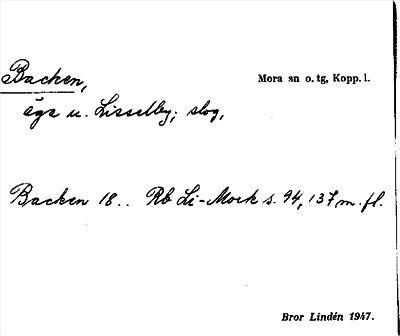 Backen,
Mora sn o. tg, Kopp. l.
äga u. Lisselby; slog,
Backen 18.. Rb Li-Mork s. 94, 137 m. fl.
Bror Lindén 1947.